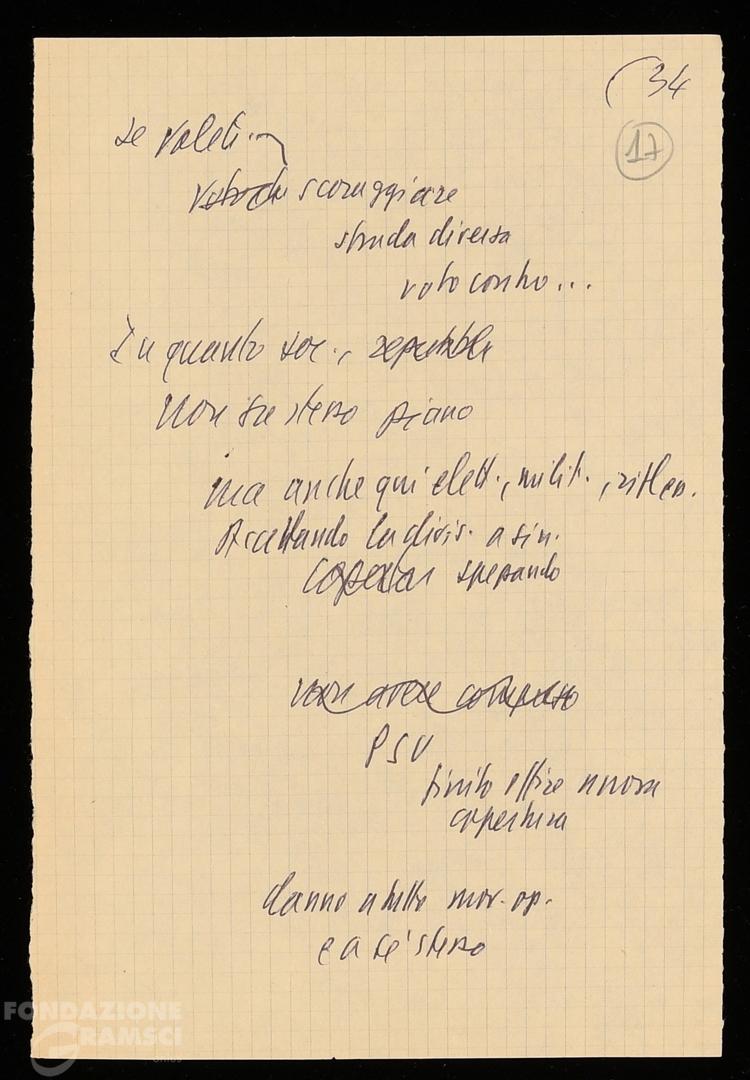 (34
17
se volete...
scoraggiare
strada diversa
voto contro...
In quanto soc.,
non su stesso piano
ma anche qui elett., milit.,
Accettando la divis. a sin.
sperando
non avere compreso
PSU
finito offrire nuova
copertura
danno a tutto mov. op.
e a se' stesso
FONDAZIONE
GRAMSCI